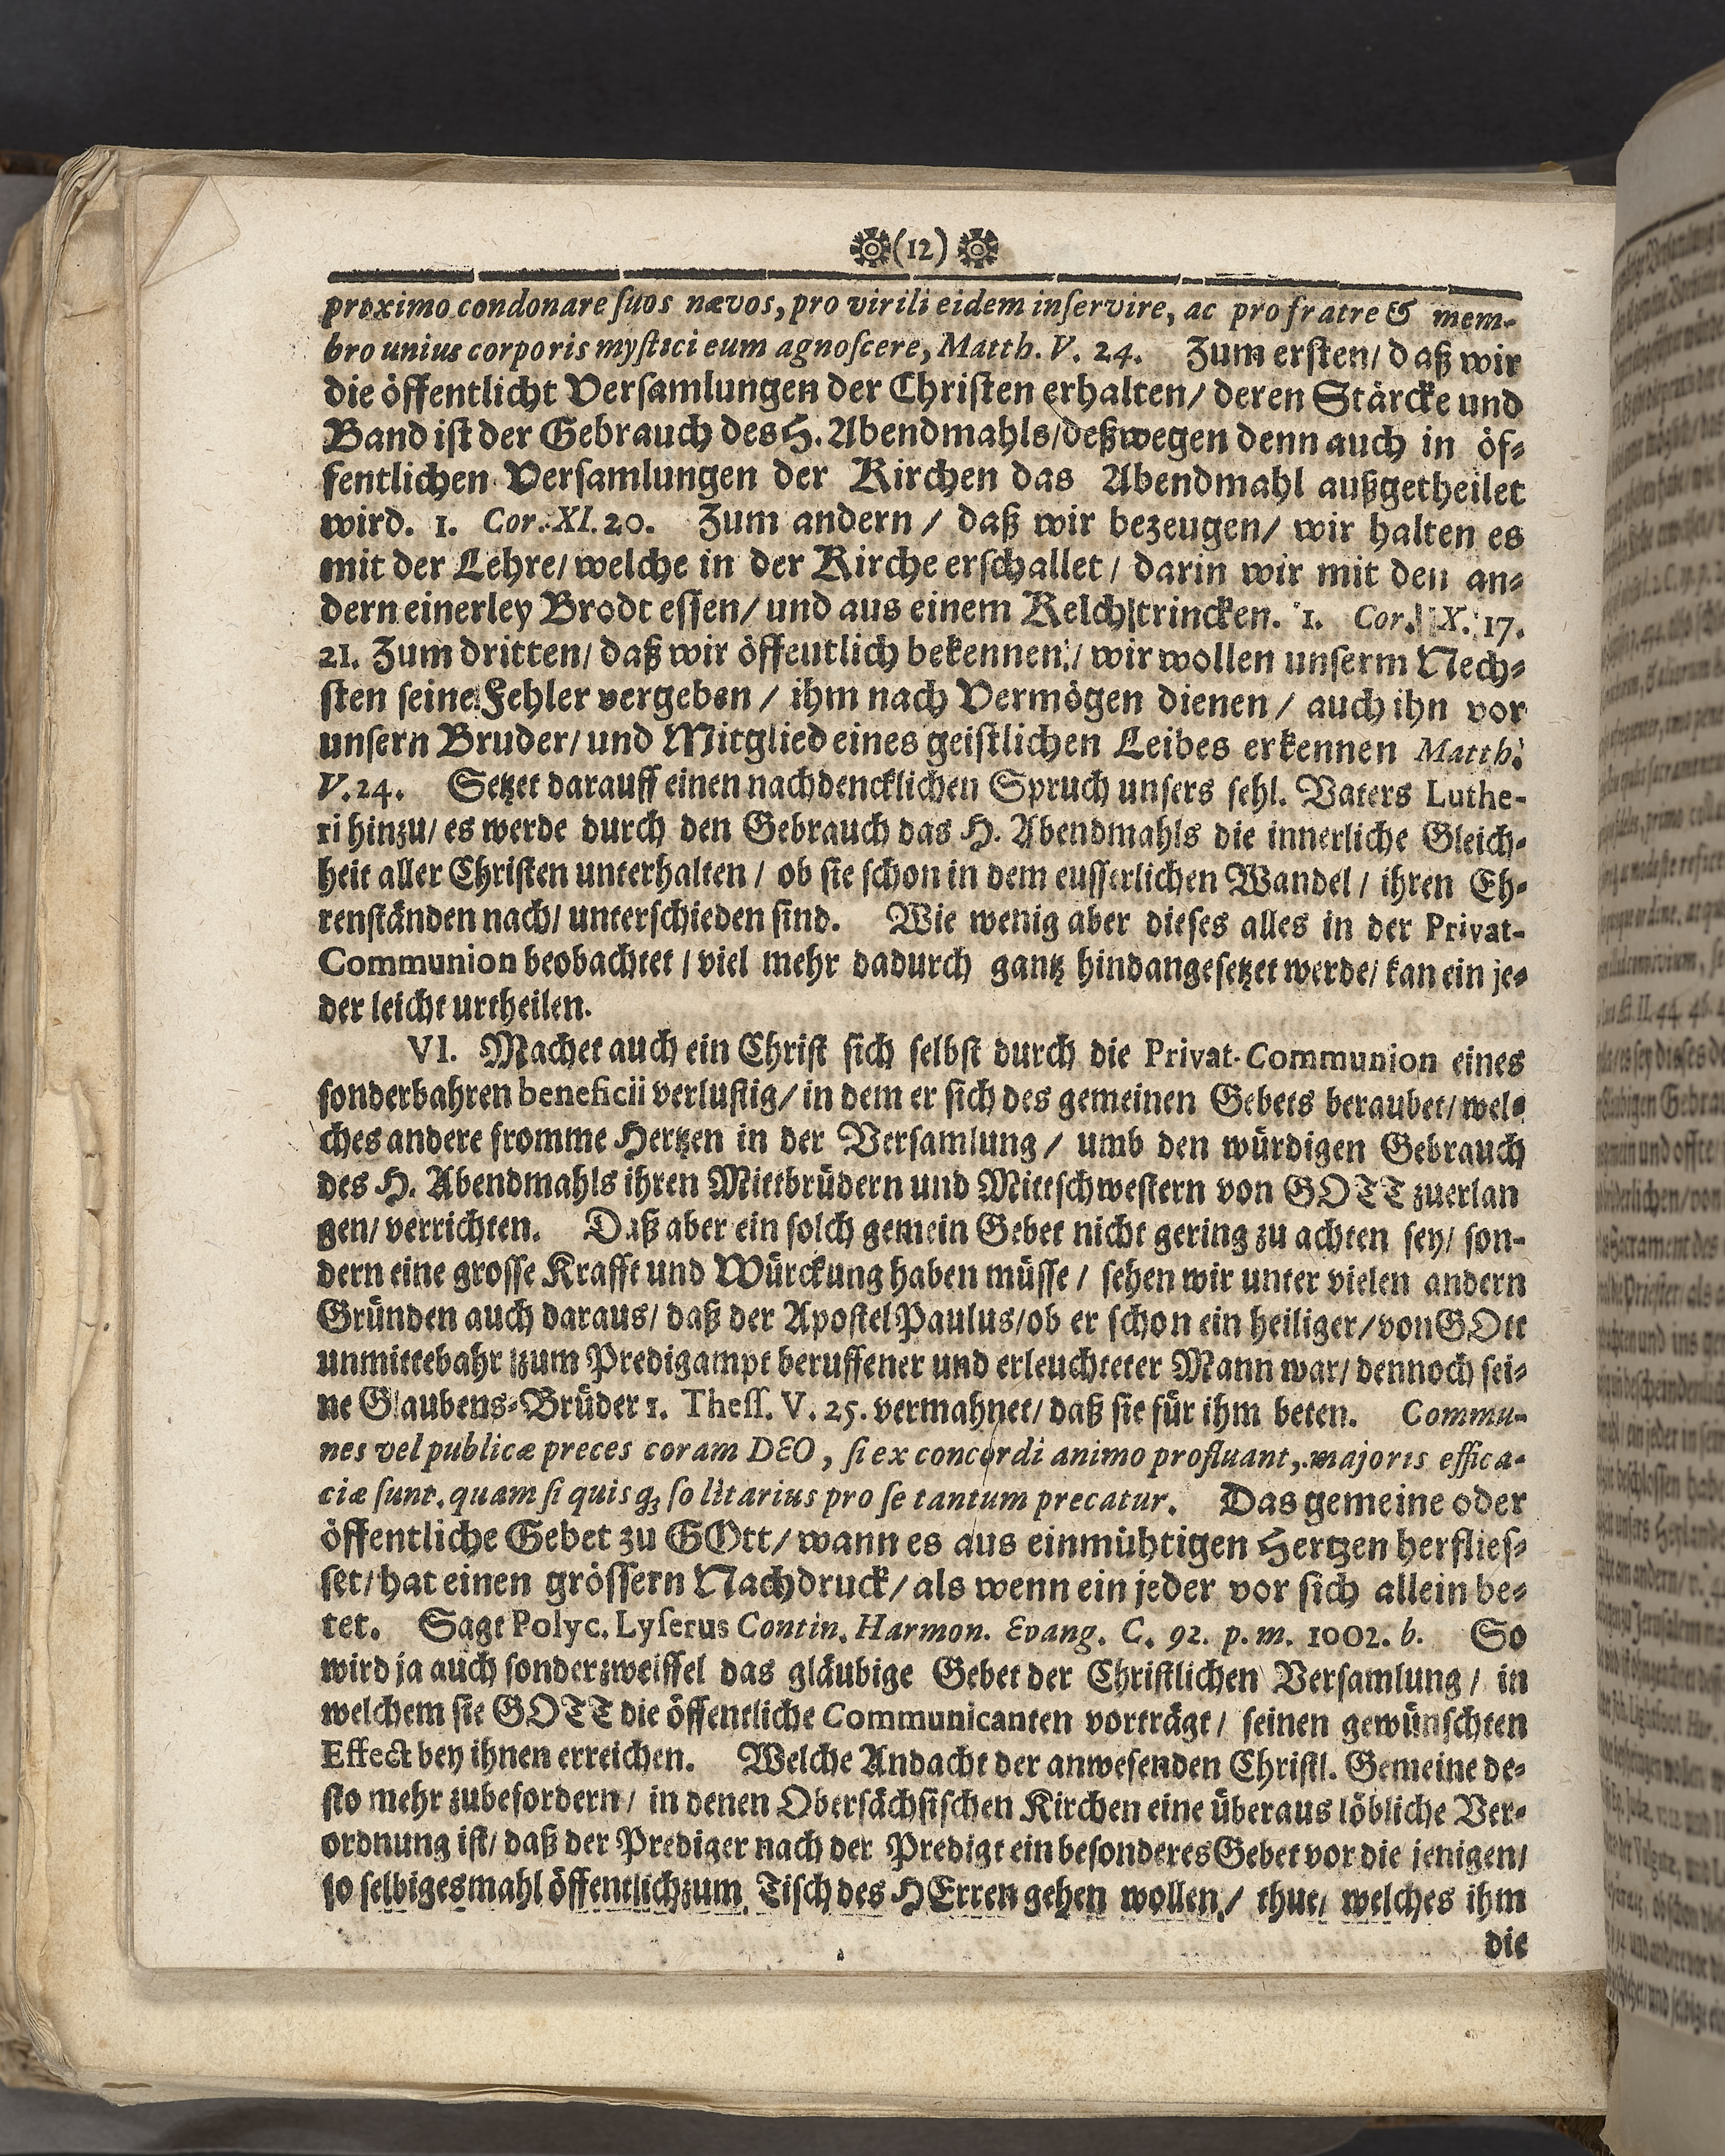 (12)
proximo condonare ſuos nævos, pro virili eidem inſervire, ac pro fratre & mem-
bro unius corporis myſtici eum agnoſcere, Matth. V. 24. Zum erſten/ daß wir
die öffentlicht Verſamlungen der Chriſten erhalten/ deren Stärcke und
Band iſt der Gebrauch des H. Abendmahls/deßwegen denn auch in öf-
fentlichen Verſamlungen der Kirchen das Abendmahl außgetheilet
wird. 1. Cor. XI. 20. Zum andern / daß wir bezeugen/ wir halten es
mit der Lehre/ welche in der Kirche erſchallet / darin wir mit den an-
dern einerley Brodt eſſen/ und aus einem Kelch trincken. 1. Cor. X. 17.
21. Zum dritten/ daß wir öffeutlich bekennen/ wir wollen unſerm Nech-
ſten ſeine Fehler vergeben / ihm nach Vermögen dienen / auch ihn vor
unſern Bruder/ und Mitglied eines geiſtlichen Leibes erkennen Matth.
V. 24. Setzet darauff einen nachdencklichen Spruch unſers ſehl. Vaters Luthe-
ri hinzu/ es werde durch den Gebrauch das H. Abendmahls die innerliche Gleich-
heit aller Chriſten unterhalten / ob ſie ſchon in dem euſſerlichen Wandel / ihren Eh-
renſtänden nach/ unterſchieden ſind. Wie wenig aber dieſes alles in der Privat-
Communion beobachtet / viel mehr dadurch gantz hindangeſetzet werde/ kan ein je-
der leicht urtheilen.
VI. Machet auch ein Chriſt ſich ſelbſt durch die Privat-Communion eines
ſonderbahren beneficii verluſtig/ in dem er ſich des gemeinen Gebets beraubet/ wel-
ches andere fromme Hertzen in der Verſamlung / umb den würdigen Gebrauch
des H. Abendmahls ihren Mittbrüdern und Mittſchweſtern von GOTT zuerlan
gen/ verrichten. Daß aber ein ſolch gemein Gebet nicht gering zu achten ſey/ ſon-
dern eine groſſe Krafft und Würckung haben müſſe / ſehen wir unter vielen andern
Gründen auch daraus/ daß der Apoſtel Paulus/ob er ſchon ein heiliger/von GOtt
unmittebahr zum Predigampt beruffener und erleuchteter Mann war/ dennoch ſei-
ne Glaubens-Brüder 1. Theſſ. V. 25. vermahnet/ daß ſie für ihm beten. Commu-
nes vel publicæ preces coram DEO, ſi ex concordi animo profluant, majoris effica-
ciæ ſunt, quam ſi quisq; ſolitarius pro ſe tantum precatur. Das gemeine oder
öffentliche Gebet zu GOtt/ wann es aus einmühtigen Hertzen herflieſ-
ſet/ hat einen gröſſern Nachdruck/ als wenn ein jeder vor ſich allein be-
tet. Sagt Polyc. Lyſerus Contin. Harmon. Evang. C. 92. p. m. 1002. b. So
wird ja auch ſonder zweiffel das gläubige Gebet der Chriſtlichen Verſamlung / in
welchem ſie GOTT die öffentliche Communicanten vorträgt / ſeinen gewünſchten
Effect bey ihnen erreichen. Welche Andacht der anweſenden Chriſtl. Gemeine de-
ſto mehr zubefordern / in denen Oberſächſiſchen Kirchen eine überaus löbliche Ver-
ordnung iſt/ daß der Prediger nach der Predigt ein beſonderes Gebet vor die jenigen/
ſo ſelbigesmahl öffentlich zum Tiſch des HErren gehen wollen / thue/ welches ihm
die